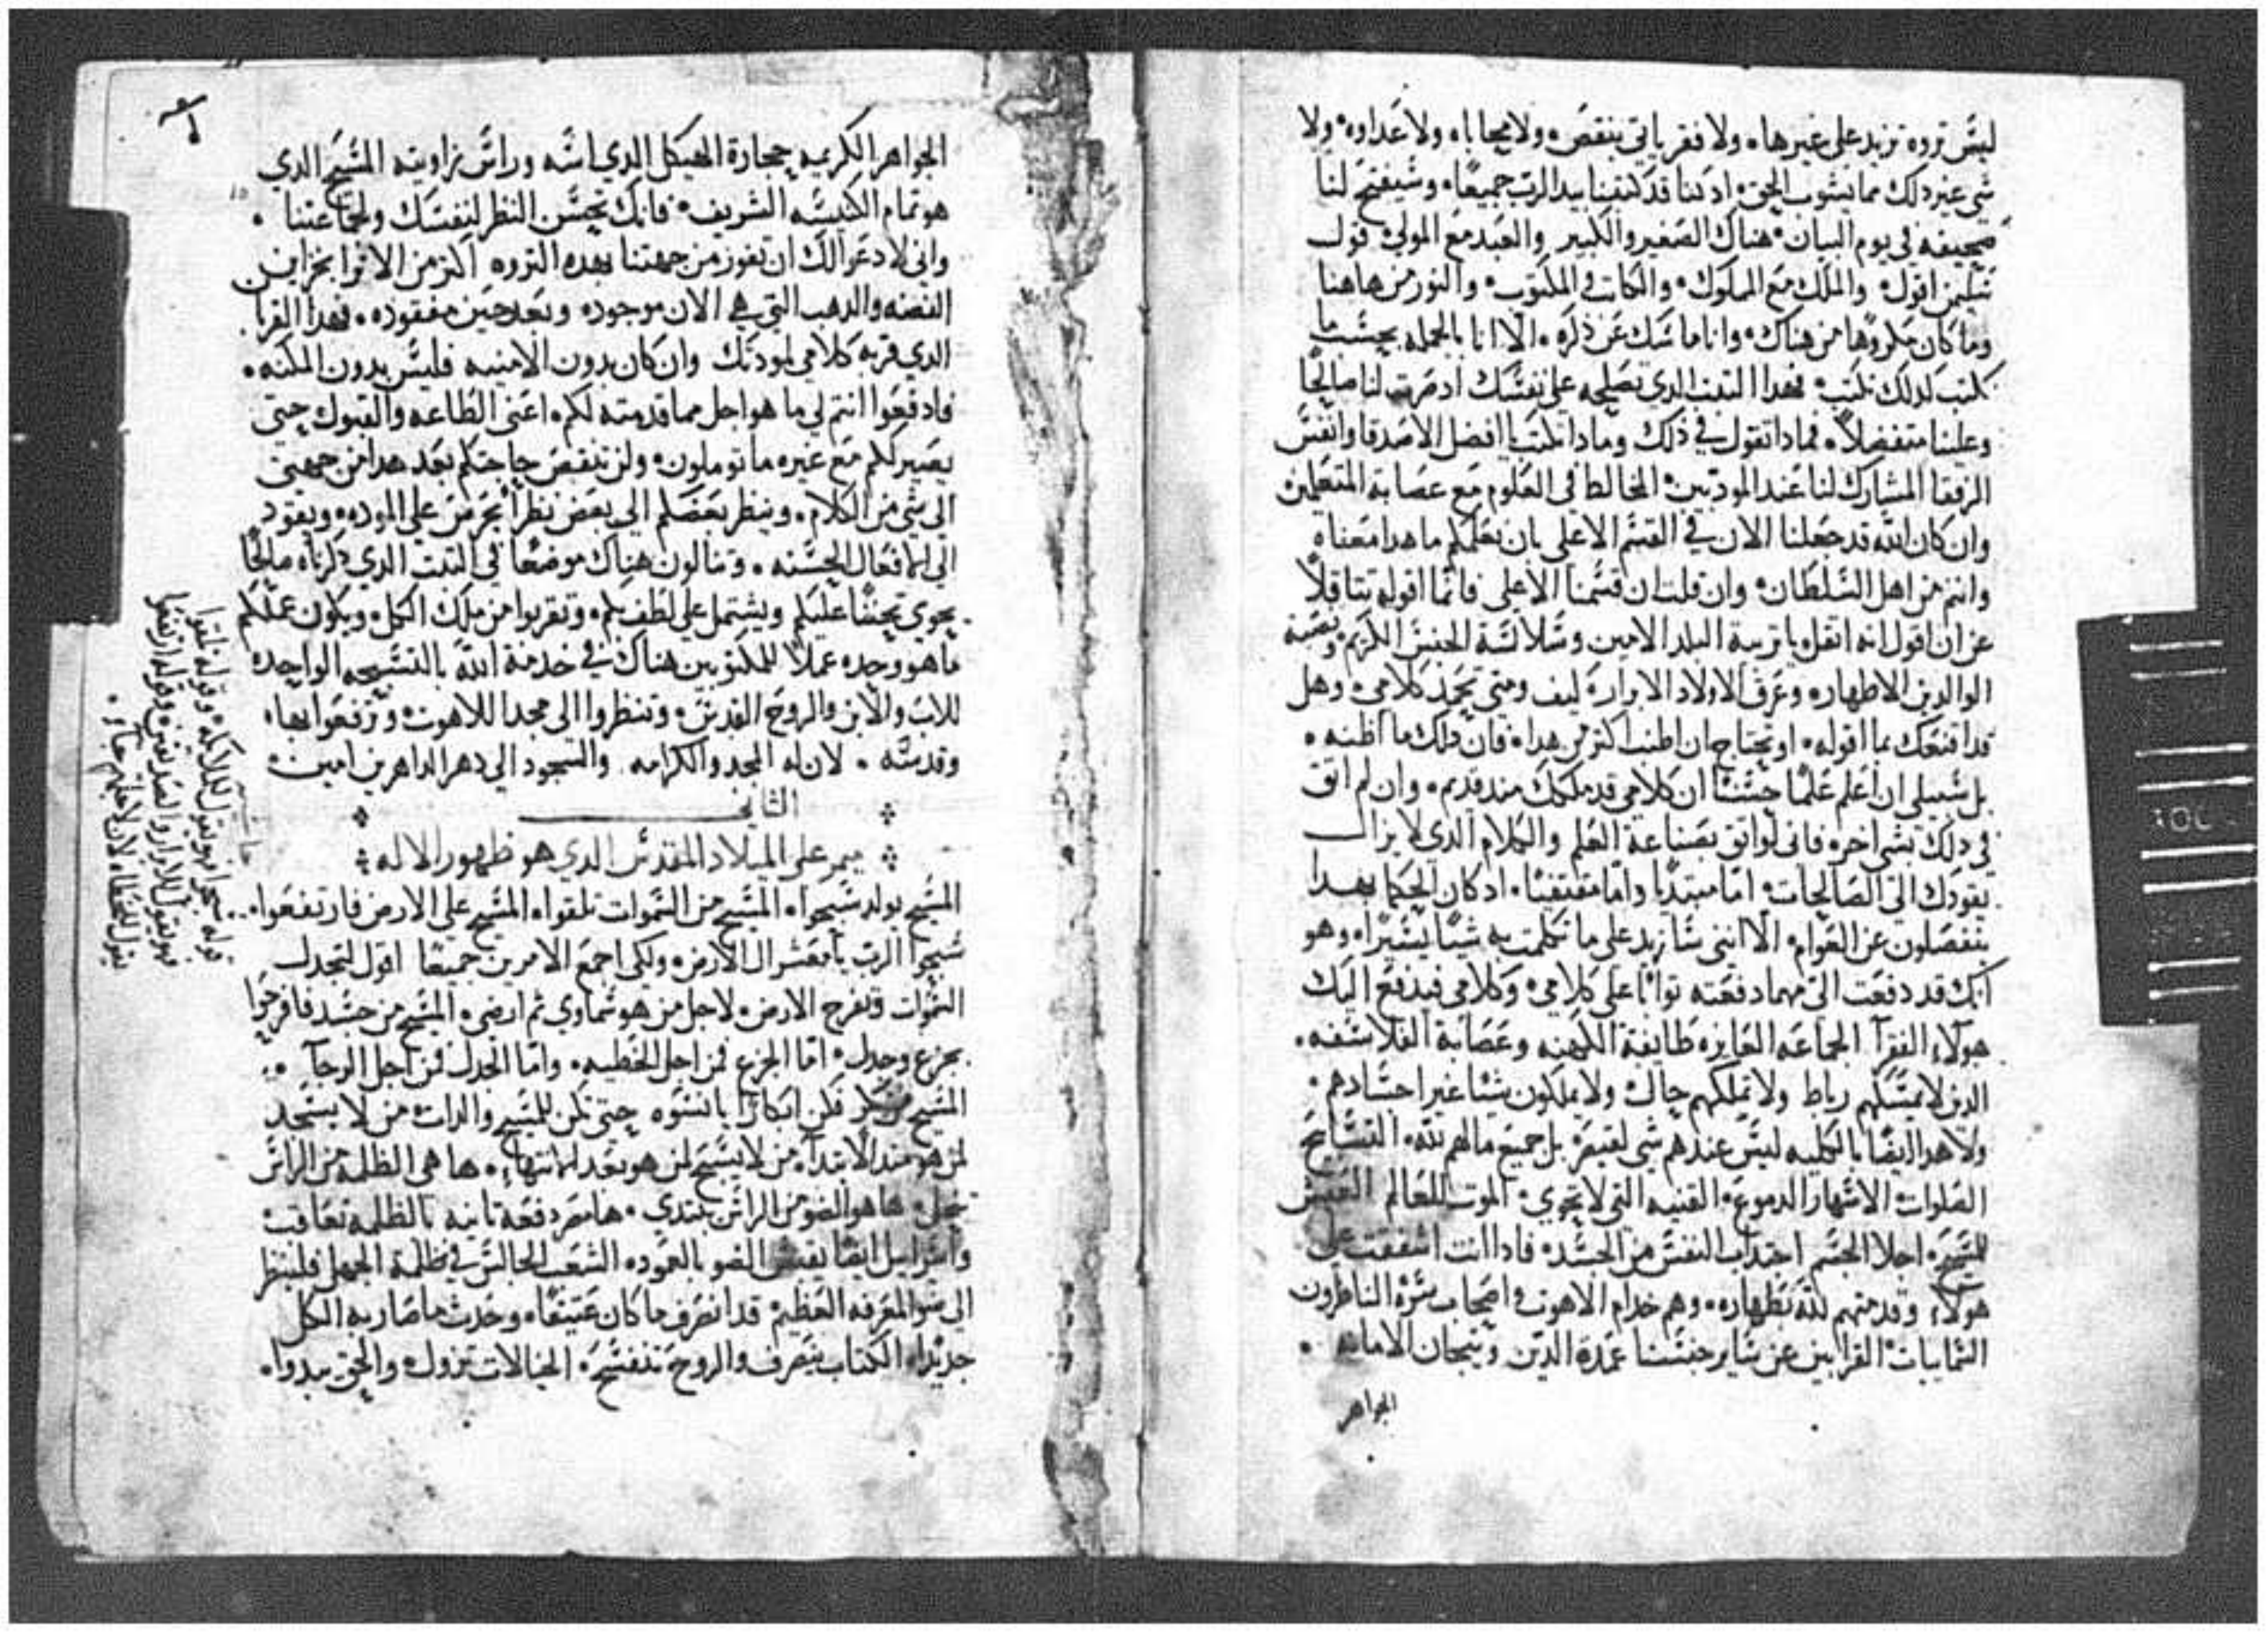 ليس تروه تزيد على غيرها ولا فقر ياتي بنقص ولا محاباه ولا عداوه ولا
شي غير ذلك مما يشوب الحق اد كنا قد كتبنا بيد الرب جميعًا وسيفتح لنا
صحيفه في يوم البيان هناك الصغير والكبير والعبد مع المولى قول
اقول والملك مع المملوك والكاتب والمكتوب والنور من هاهنا
وما كان مكروها من هناك وانا ماسك عن ذكره الا انا بالجمله بحسب ما
نكتب لدلك نكتب فهدا التبت الدي تصلحه على نفسك اد صرت لنا صالحًا
وعلينا متفضلاً فمادا تقول في ذلك ومادا تكتب يا افضل الاصدقا وانفس
الرفقا المشارك لنا عند المودبين المخالط في العلوم مع عصابة المتعلمين
وان كان الله قد جعلنا الان في القسم الاعلى بان نعلمكم ما هدا معناه
وانتم من اهل السلطان وان قلت ان قسمنا الاعلى فانما اقوله تتاقلاً
عن ان اقول انه اثقل يا تربية البلد الامين وسلالسة الجنس الكريم
الوالدين الاطهار وعرف الاولاد الابرار كيف ومتى تحمد كلامي وهل
قد اقنعك بما اقوله او تحتاج ان اطنب اكتر من هدا فان دلك ما اظنه
بل سبيلي ان اعلم علمًا حسنًا ان كلامي قد ملكك مند قديم وان لم اتق
في دلك بشي اخر فاني لواتق بصناعة العلم والكلام الدي لا يزال
يقودك الى الصالحات اما مبتديًا واما مقتفيًا ادكان الحكما بهدا
ينفصلون عن العوام الا انني سازيد على ما تكلمت به شيًا يسيرًا وهو
انك قد دفعت الي مهما دفعته توابًا على كلامي وكلامي فيدفع اليك
هولاء الفقرآ الجماعه الفايزه طايفة الكهنه وعصابة الفلاسفه
الدين لا يمسكهم رباط ولا تملكهم حال ولا يملكون شيًا غير اجسادهم
ولا هدا ايضًا بالكليه ليس عندهم شي لقيصر بل جميع مالهم لله التسابيح
الصلوات الاسهار الدموع القنيه التي لا تحوى الموت للعالم العيش
للمسيح اجلا الجسم اجتداب النفس من الجسد فادا انت اشفقت على
هولاء وقدمتهم لله بطهاره وهم خدام الاهوت واصحاب سره الناظرون
السماييات القرابين عن ساير جنسنا عمدة الدين وتيجان الامانه
الجواهر
الجواهر الكريمه حجارة الهيكل الدي اسه وراس زاويته المسيح الدي
هو تمام الكنيسه الشريف فانك تحسن النظر لنفسك ولجماعتنا
واني لادعوا لك ان تفوز من جهتنا بهده التروه اكتر من الاترا بخزاين
الفضه والدهب التي هي الان موجوده وبعد حين مفقوده فهدا القربا
الدي قربه كلامي لمودتك وان كان بدون الامنيه فليس بدون المكنه
فادفعوا انتم لي ما هو اجل مما قدمته لكم اعني الطاعه والقبول حتى
يصير لكم مع غيره ما تومِلون ولن تنقص حاجتكم بعد هدا من جهتي
الى شي من الكلام وينظر بعضكم الى بعض نظرًا يحرص على الموده ويقود
الى الافعال الحسنه وتنالون هناك موضعًا في التبت الدي ذكرناه صالحًا
يحوي تحننًا عليكم ويشتمل على لطف بكم وتقربوا من ملك الكل ويكون عملكم
ما هو وحده عملاً للمكتوبين هناك في خدمة الله بالتسبيحه الواحده
للاب والابن والروح القدس وتنظروا الى مجد اللاهوت وترفعوا بها
وقدسه لان له المجد والكرامه والسجود الى دهر الداهرين امين
الثاني
ميمر على الميلاد المقدس الدي هو ظهور الاله
المسيح يولد سبحوا المسيح من السموات تلقوا المسيح على الارض فارتفعوا
سبحوا الرب يا معشر ال الارض ولكي اجمع الامرين جميعًا اقول لتجدل
السموات وتفرح الارض لاجل من هو سماوي ثم ارضي المسيح من جسد فافرحوا
بجزع وجدل اما الجزع فمن اجل الخطيه واما الجدل فمن اجل الرجآ
المسيح من بكر فكن ابكارًا يا نسوه حتى تكن للمسيح والدات من لا يسجد
لمن هو مند الابتدآ من لا يسبح لمن هو بعد الانتهاء ها هي الظلمه من الراس
تنحل ها هو الضو من الراس يبتدي ها مصر دفعه تانيه بالظلمه تعاقب
واسراييل ايضًا يقتبس الضو بالعمود الشعب الجالس في ظلمة الجهل فلينظر
الى ضو المعرفه العظيم قد انصرف ما كان عتيقًا وحدث ما صار به الكل
جديدًا الكتاب ينصرف والروح تنفسح الخيالات تزول والحق يبدوا